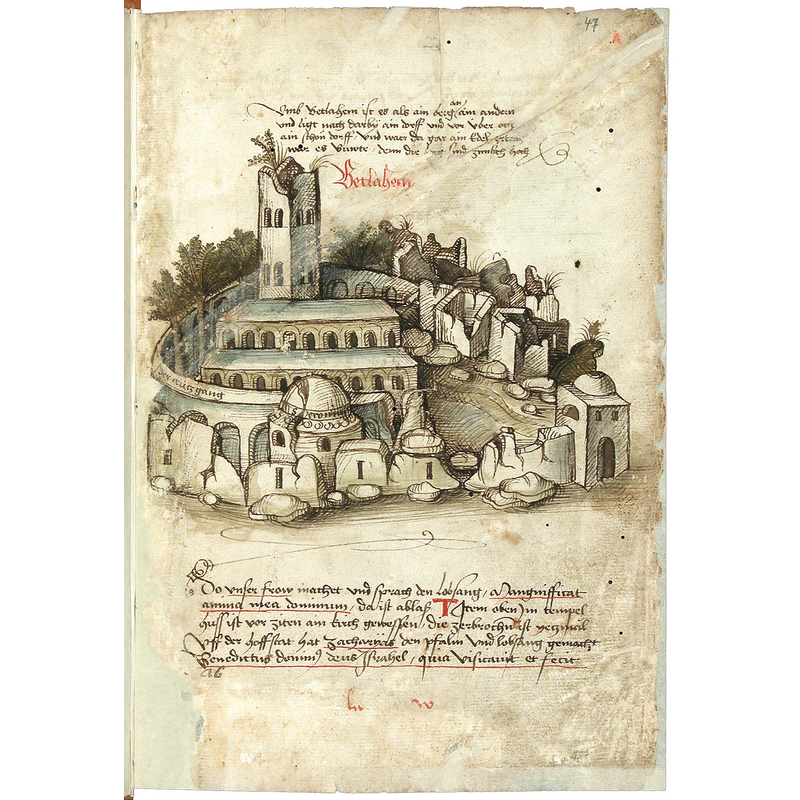 47
A
Umb Betlahem ist es als ain berg an ain andern
und ligt nach darby ain dorff und vor uber
ain schon dorff / und waer da gar ain
war es buwte, denn die berg sind zimlich hoch
Betlahem
der crütz gang
Do unser frow machet und sprach den lobsang / Mangnifficat
anima mea dominum / da ist ablaß Item oben in tempel
huss ist vor ziten ain kirch gewessen / die zerbrochn ist yezmal
Uff der hoffstat hat Zacharyeis den psalm und lobsang gemacht
Benedictus domin9 deus Israhel / quia visitavit et fecit
46